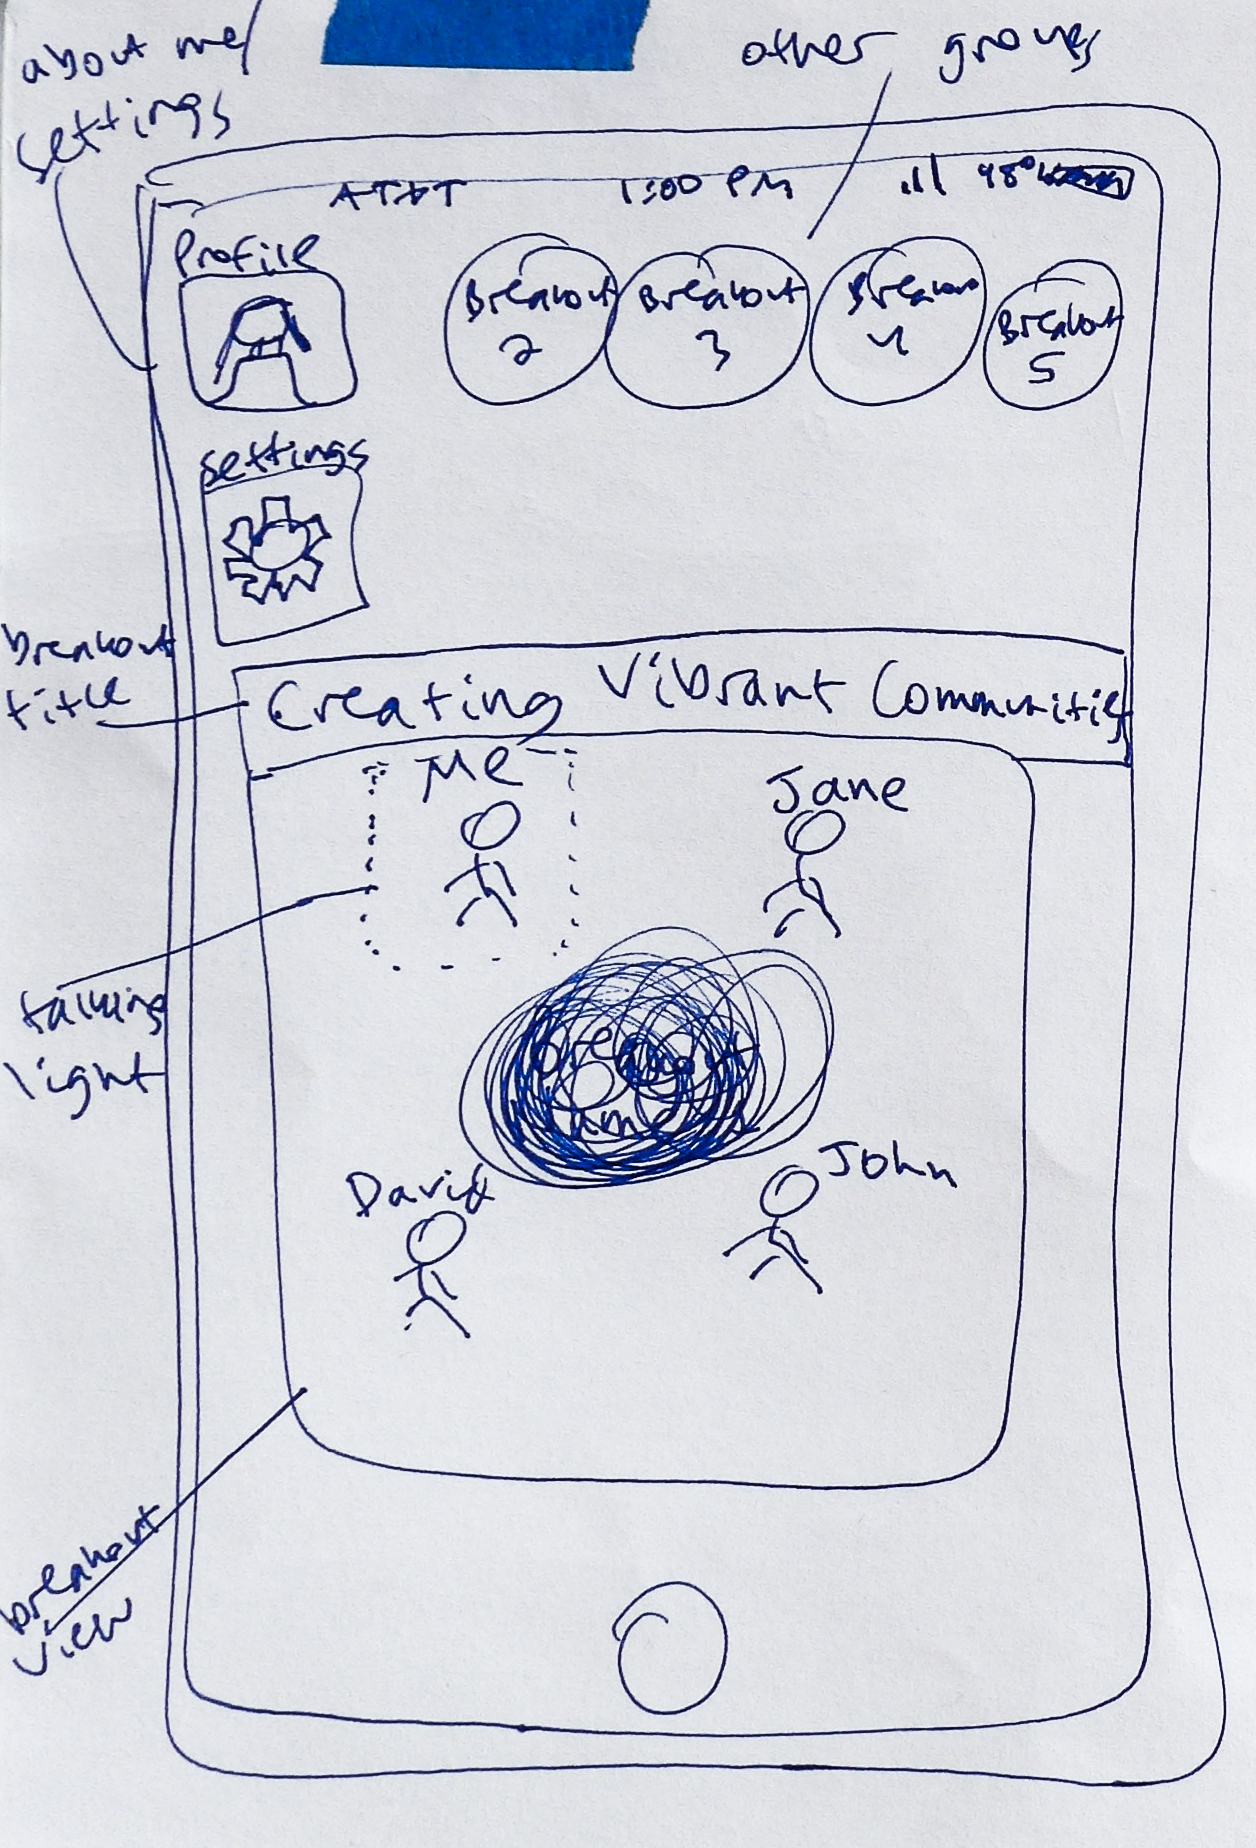 about me/
settings
other groups
AT&T 1:00 PM
Profile
Breakout
2
Breakout
3
Breakout
4
Breakout
5
settings
breakout
title
Creating Vibrant Communities
Me
Jane
talking
light
breakout
name
David
John
breakout
view